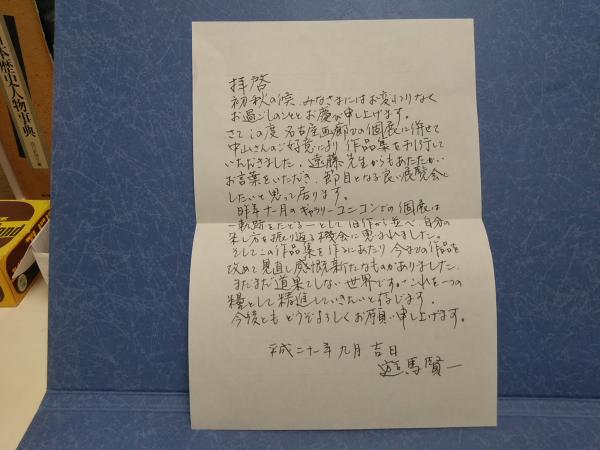 本歴史人物事典
拝啓
初秋の候、みなさまにはお変わりなく
お過ごしのこととお慶び申し上げます。
さてこの度 名古屋画廊での個展に併せて
中山さんのご好意により 作品集を刊行して
いただきました。遠藤先生からもあたたかい
お言葉をいただき、節目となる良い展覧会に
したいと思って居ります。
昨年十一月のギャラリーユニコンでの個展は
―軌跡をたどる―として旧作から並べ、自分の
来し方を振り返る機会に恵まれました。
そしてこの作品集を作るにあたり 今までの作品を
改めて見直し感慨新たなものがありました。
まだまだ道果てしない世界です。これを一つの
糧として精進していきたいと存じます。
今後とも どうぞよろしくお願い申し上げます。
平成二十一年九月吉日
遊馬賢一